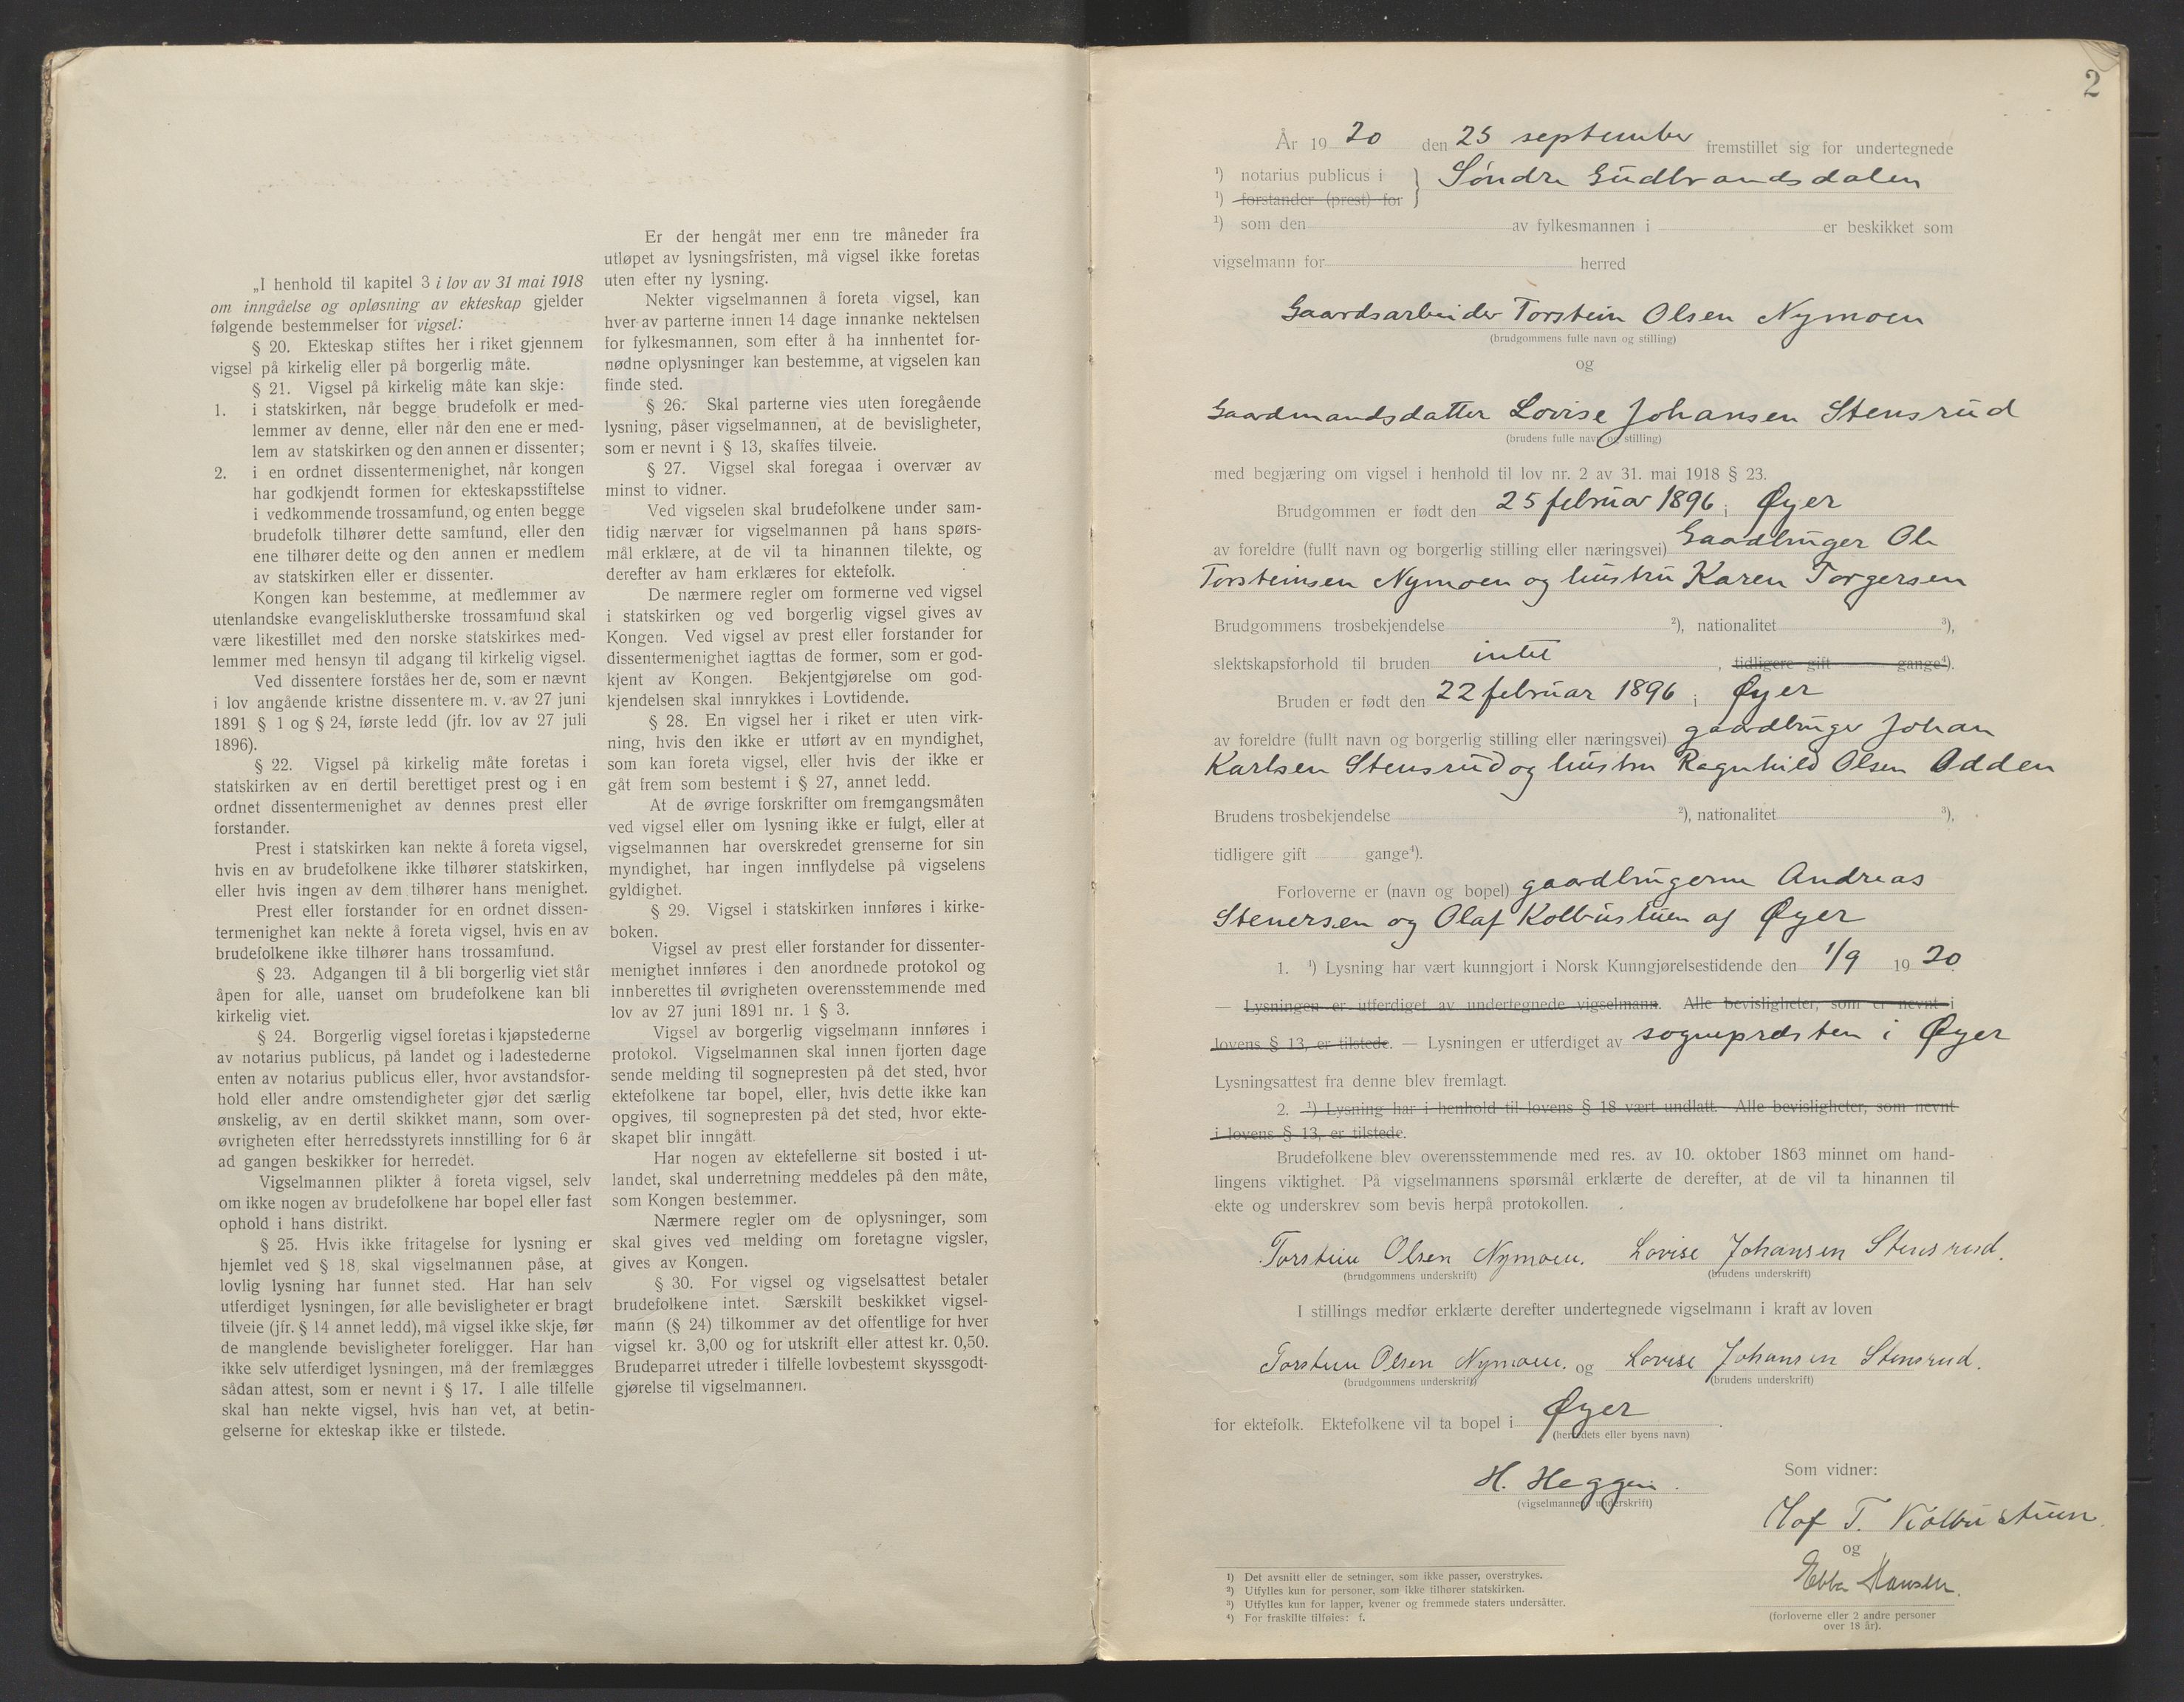 „I henhold til kapitel 3 i lov av 31 mai 1918
om inngåelse og opløsning av ekteskap gjelder
følgende bestemmelser for vigsel:
§ 20. Ekteskap stiftes her i riket gjennem
vigsel på kirkelig eller på borgerlig måte.
§ 21. Vigsel på kirkelig måte kan skje:
1. i statskirken, når begge brudefolk er med-
lemmer av denne, eller når den ene er med-
lem av statskirken og den annen er dissenter;
2. i en ordnet dissentermenighet, når kongen
har godkjendt formen for ekteskapsstiftelse
i vedkommende trossamfund, og enten begge
brudefolk tilhører dette samfund, eller den
ene tilhører dette og den annen er medlem
av statskirken eller er dissenter.
Kongen kan bestemme, at medlemmer av
utenlandske evangeliskluth­erske trossamfund skal
være likestillet med den norske statskirkes med-
lemmer med hensyn til adgang til kirkelig vigsel.
Ved dissentere forståes her de, som er nævnt
i lov angående kristne dissentere m. v. av 27 juni
1891 § 1 og § 24, første ledd (jfr. lov av 27 juli
1896).
§ 22. Vigsel på kirkelig måte foretas i
statskirken av en dertil berettiget prest og i en
ordnet dissentermenighet av dennes prest eller
forstander.
Prest i statskirken kan nekte å foreta vigsel,
hvis en av brudefolkene ikke tilhører statskirken,
eller hvis ingen av dem tilhører hans menighet.
Prest eller forstander for en ordnet dissen-
termenighet kan nekte å foreta vigsel, hvis en av
brudefolkene ikke tilhører hans trossamfund.
§ 23. Adgangen til å bli borgerlig viet står
åpen for alle, uanset om brudefolkene kan bli
kirkelig viet.
§ 24. Borgerlig vigsel foretas i kjøpstederne
av notarius publicus, på landet og i ladestederne
enten av notarius publicus eller, hvor avstandsfor-
hold eller andre omstendigheter gjør det særlig
ønskelig, av en dertil skikket mann, som over-
øvrigheten efter herredsstyrets innstilling for 6 år
ad gangen beskikker for herredet.
Vigselmannen plikter å foreta vigsel, selv
om ikke nogen av brudefolkene har bopel eller fast
ophold i hans distrikt.
§ 25. Hvis ikke fritagelse for lysning er
hjemlet ved § 18, skal vigselmannen påse, at
lovlig lysning har funnet sted. Har han selv
utferdiget lysningen, før alle bevisligheter er bragt
tilveie (jfr. § 14 annet ledd), må vigsel ikke skje, før
de manglende bevisligheter foreligger. Har han
ikke selv utferdiget lysningen, må der fremlægges
sådan attest, som er nevnt i § 17. I alle tilfelle
skal han nekte vigsel, hvis han vet, at betin-
gelserne for ekteskap ikke er tilstede.
Er der hengåt mer enn tre måneder fra
utløpet av lysningsfristen, må vigsel ikke foretas
uten efter ny lysning.
Nekter vigselmannen å foreta vigsel, kan
hver av parterne innen 14 dage innanke nektelsen
for fylkesmannen, som efter å ha innhentet for-
nødne oplysninger kan bestemme, at vigselen kan
finde sted.
§ 26. Skal parterne vies uten foregående
lysning, påser vigselmannen, at de bevisligheter,
som er nevnt i § 13, skaffes tilveie.
§ 27. Vigsel skal foregaa i overvær av
minst to vidner.
Ved vigselen skal brudefolkene under sam-
tidig nærvær for vigselmannen på hans spørs-
mål erklære, at de vil ta hinannen tilekte, og
derefter av ham erklæres for ektefolk.
De nærmere regler om formerne ved vigsel
i statskirken og ved borgerlig vigsel gives av
Kongen. Ved vigsel av prest eller forstander for
dissentermenighet iagttas de former, som er god-
kjent av Kongen. Bekjentgjørelse om god-
kjendelsen skal innrykkes i Lovtidende.
§ 28. En vigsel her i riket er uten virk-
ning, hvis den ikke er utført av en myndighet,
som kan foreta vigsel, eller hvis der ikke er
gåt frem som bestemt i § 27, annet ledd.
At de øvrige forskrifter om fremgangsmåten
ved vigsel eller om lysning ikke er fulgt, eller at
vigselmannen har overskredet grenserne for sin
myndighet, har ingen innflydelse på vigselens
gyldighet.
§ 29. Vigsel i statskirken innføres i kirke-
boken.
Vigsel av prest eller forstander for dissenter-
menighet innføres i den anordnede protokol og
innberettes til øvrigheten overensstemmende med
lov av 27 juni 1891 nr. 1 § 3.
Vigsel av borgerlig vigselmann innføres i
protokol. Vigselmannen skal innen fjorten dage
sende melding til sognepresten på det sted, hvor
ektefolkene tar bopel, eller, hvis dette ikke kan
opgives, til sognepresten på det sted, hvor ekte-
skapet blir inngått.
Har nogen av ektefellerne sit bosted i ut-
landet, skal underretning meddeles på den måte,
som Kongen bestemmer.
Nærmere regler om de oplysninger, som
skal gives ved melding om foretagne vigsler,
gives av Kongen.
§ 30. For vigsel og vigselsattest betaler
brudefolkene intet. Særskilt beskikket vigsel-
mann (§ 24) tilkommer av det offentlige for hver
vigsel kr. 3,00 og for utskrift eller attest kr. 0,50.
Brudeparret utreder i tilfelle lovbestemt skyssgodt-
gjørelse til vigselmannen.
2
År 1920 den 25 september fremstillet sig for undertegnede
¹) notarius publicus i } Søndre Gudbrandsdalen
¹) forstander (prest) for
¹) som den av fylkesmannen i er beskikket som
vigselmann for herred
Gaardsarbeider Torstein Olsen Nymoen
(brudgommens fulle navn og stilling)
og
Gaardmandsdatter Lovise Johansen Stensrud
(brudens fulle navn og stilling)
med begjæring om vigsel i henhold til lov nr. 2 av 31. mai 1918 § 23.
Brudgommen er født den 25 februar 1896 i Øyer
av foreldre (fullt navn og borgerlig stilling eller næringsvei) Gaardbruger Ole
Torsteinsen Nymoen og hustru Karen Torgersen
Brudgommens trosbekjendelse ²), nationalitet ³),
slektskapsforhold til bruden intet , tidligere gift gange⁴).
Bruden er født den 22 februar 1896 i Øyer
av foreldre (fullt navn og borgerlig stilling eller næringsvei) gaardbruger Johan
Karlsen Stensrud og hustru Ragnhild Olsen Odden
Brudens trosbekjendelse ²), nationalitet ³),
tidligere gift gange⁴).
Forloverne er (navn og bopel) gaardbrugerne Andreas
Stenersen og Olaf Kolbustuen af Øyer
1. ¹) Lysning har vært kunngjort i Norsk Kunngjørelsestidende den 1/9 1920
— Lysningen er utferdiget av undertegnede vigselmann. Alle bevisligheter, som er nevnt i
lovens § 13, er tilstede. — Lysningen er utferdiget av sognepresten i Øyer
Lysningsattest fra denne blev fremlagt.
2. ¹) Lysning har i henhold til lovens § 18 vært undlatt. Alle bevisligheter, som nevnt
i lovens § 13, er tilstede.
Brudefolkene blev overensstemmende med res. av 10. oktober 1863 minnet om hand-
lingens viktighet. På vigselmannens spørsmål erklærte de derefter, at de vil ta hinannen til
ekte og underskrev som bevis herpå protokollen.
Torstein Olsen Nymoen. Lovise Johansen Stensrud.
(brudgommens underskrift) (brudens underskrift)
I stillings medfør erklærte derefter undertegnede vigselmann i kraft av loven
Torstein Olsen Nymoen. og Lovise Johansen Stensrud.
(brudgommens underskrift) (brudens underskrift)
for ektefolk. Ektefolkene vil ta bopel i Øyer.
(herredets eller byens navn)
H. Heggen.
(vigselmannens underskrift)
Som vidner:
Olaf T. Kolbustuen.
og
Ebba Hansen.
(forloverne eller 2 andre personer
over 18 år).
1) Det avsnitt eller de setninger, som ikke passer, overstrykes.
2) Utfylles kun for personer, som ikke tilhører statskirken.
3) Utfylles kun for lapper, kvener og fremmede staters undersåtter.
4) For fraskilte tilføies: f.